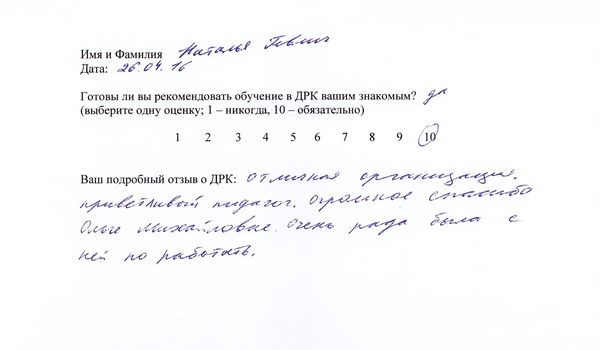 Имя и Фамилия Наталья
Дата: 26.04.16
Готовы ли вы рекомендовать обучение в ДРК вашим знакомым? да
(выберите одну оценку; 1 – никогда, 10 – обязательно)
1 2 3 4 5 6 7 8 9 10
Ваш подробный отзыв о ДРК: Отличная организация,
приветливый педагог. Огромное спасибо
Ольге Михайловне. Очень рада была с
ней по работать.